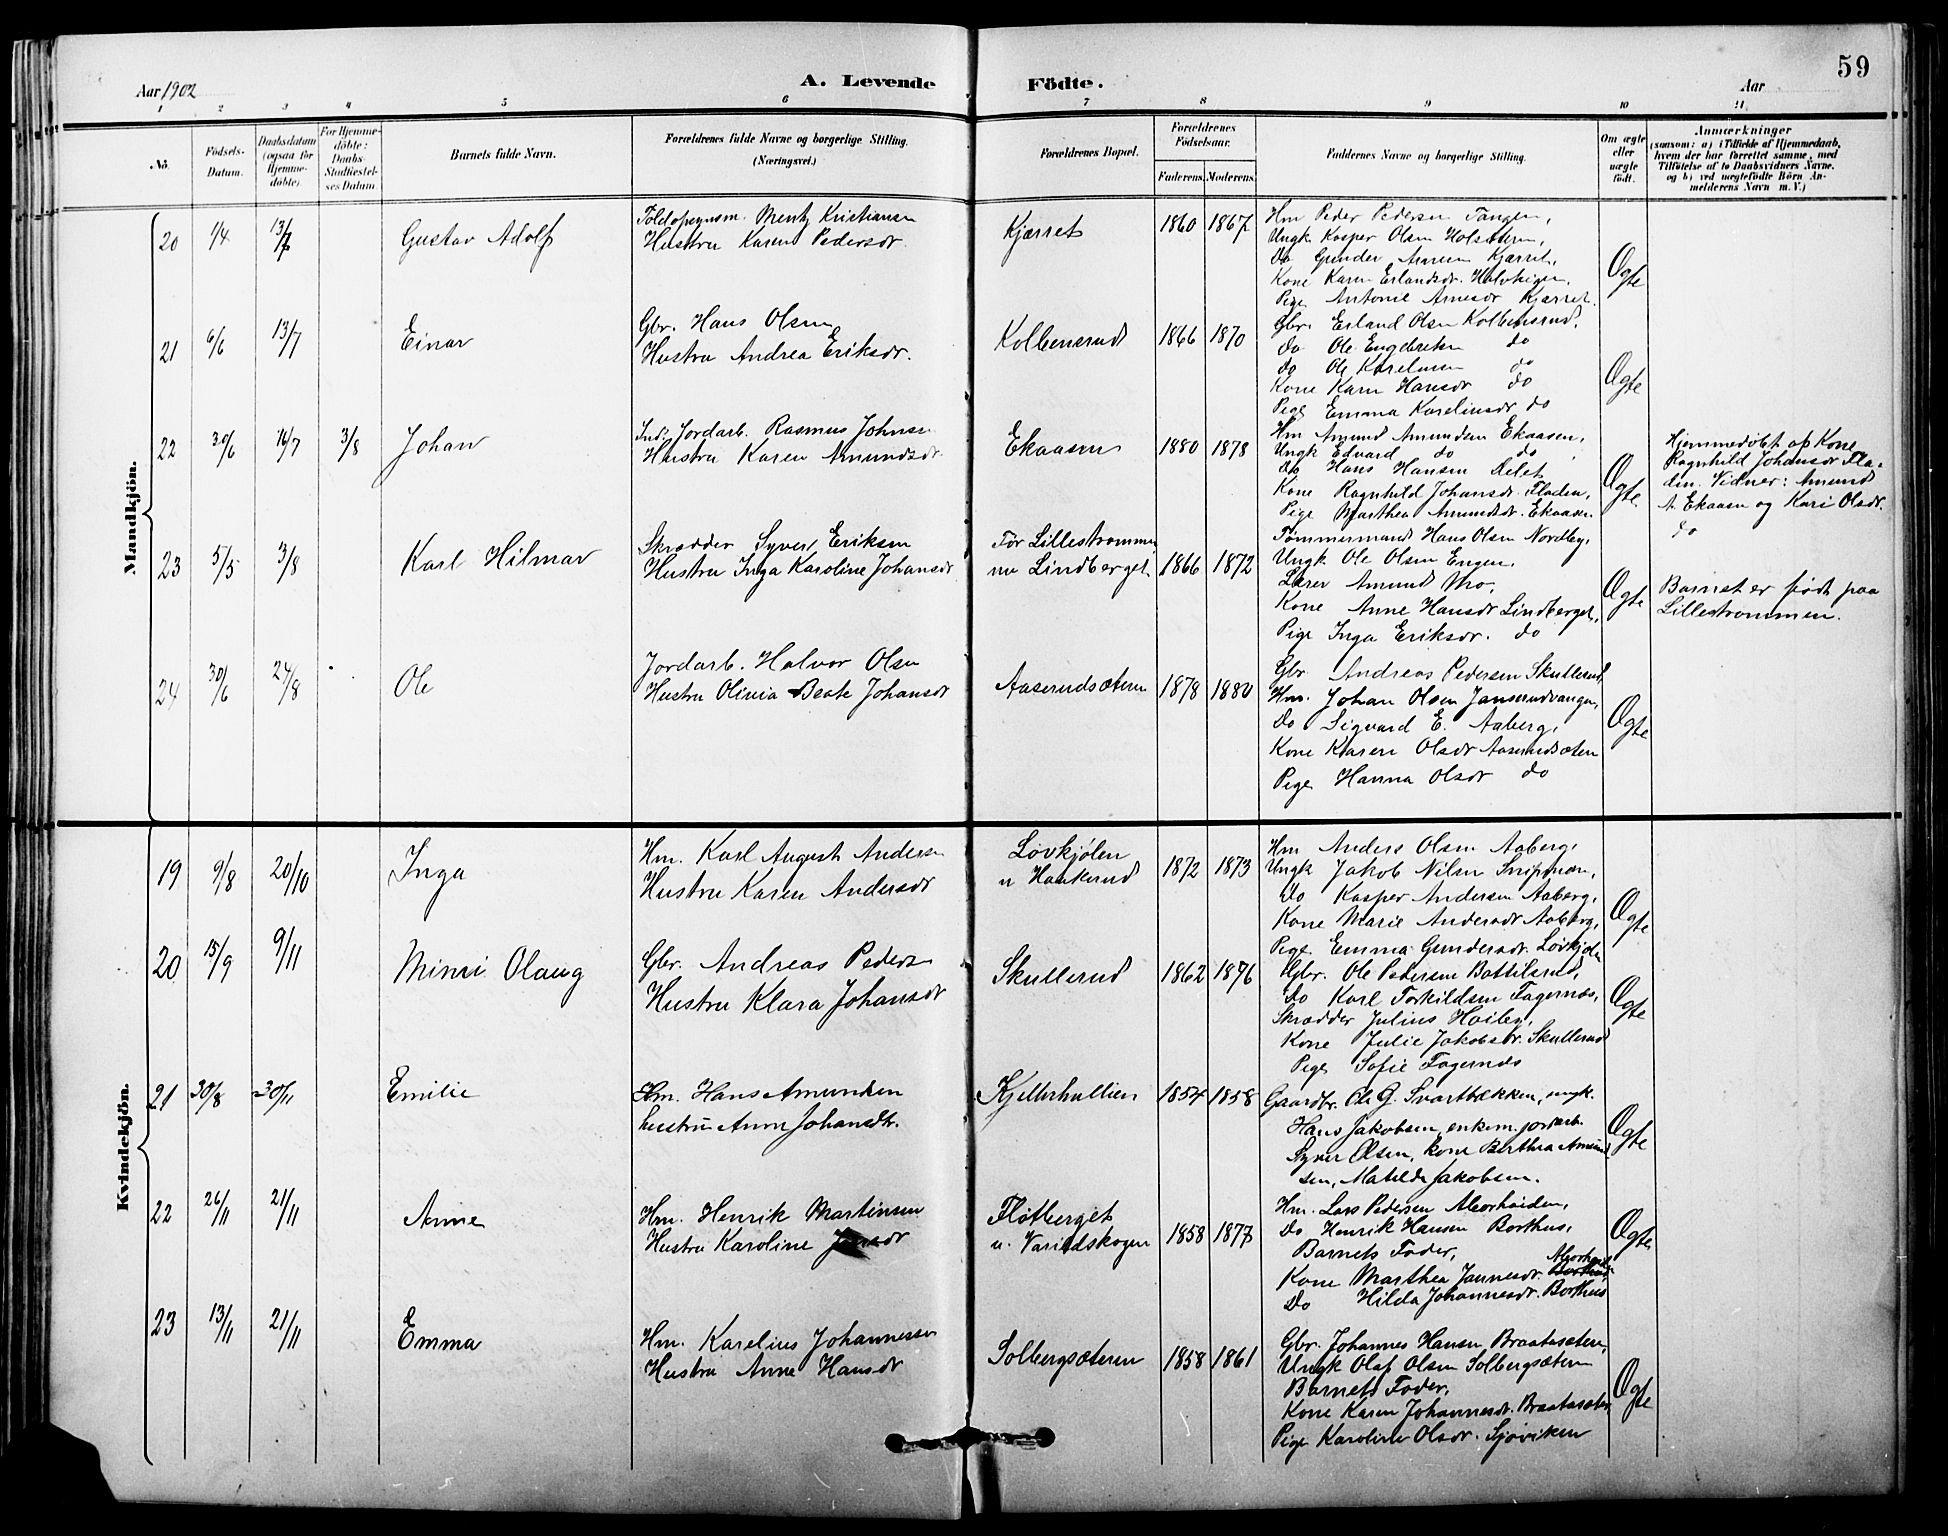 59
Aar 1902
A. Levende Födte.
Aar
1 2 3 4 5 6 7 8 9 10 11
No.
Födsels-
Datum.
Daabsdatum
(ogsaa for
Hjemme-
döbte).
For Hjemme-
döbte:
Daabs-
Stadfæstel-
ses Datum
Barnets fulde Navn.
Forældrenes fulde Navne og borgerlige Stilling.
(Næringsvei.)
Forældrenes Bopæl.
Forældrenes
Födselsaar.
Faderens. Moderens.
Faddernes Navne og borgerlige Stilling.
Om ægte
eller
uægte
födt.
Anmærkninger
(saasom: a) i Tilfælde af Hjemmedaab,
hvem der har forrettet samme, med
Tilföielse af to Daabsvidners Navne.
og b) ved uægtefödte Börn An-
melderens Navn m. V.)
Mandkjön.
20 1/4 13/7 Gustav Adolf
Mentz Kristiansen
Hustru Karen Pedersdr.
Kjærret 1860 1867
Hm Peder Pedersen Tangen,
Ungk Kasper Olsen
Do Gunder Kjærret,
Kone Karen Erlandsdr.
Pige Antonie Arnesdr Kjærret.
Ægte
21 6/6 13/7 Einar
Gbr. Hans Olsen
Hustru Andrea Eriksdr.
Kolbensrud 1866 1870
Gbr. Erland Olsen Kolbensrud,
do Ole Engebretsen do
do Ole Karelusen do
Kone Karen Hansdr do
Pige Emma Kareliusdr do
Ægte
22 30/6 16/7 3/8 Johan
Ind. Jordarb. Rasmus Johnsen
Hustru Karen Amundsdr
Ekaasen 1880 1878
Hm Amund Amundsen Ekaasen,
Ungk Edvard do do,
do Hans Hansen
Kone Ragnhild Johansdr Fladen,
Pige Marthea Amundsdr. Ekaasen
Ægte
Hjemmedøbt af Kone
Ragnhild Johansdr Fla-
den. Vidner: Amund
A. Ekaasen og Kari Olsdr.
do
23 5/5 3/8 Karl Hilmar
Skrædder Syver Eriksen
Hustru Inga Karoline Johansdr
Før Lillestrømmen
nu Lindberget 1866 1872
Tømmermand Hans Olsen Nordby,
Ungk Ole Olsen Engen,
Lærer Amund Mo,
Kone Anne Hansdr Lindberget,
Pige Inga Eriksdr. do
Ægte
Barnet er født paa
Lillestrømmen.
24 30/6 24/8 Ole
Jordarb. Halvor Olsen
Hustru Olivia Beate Johansdr
Aaserudsæteren 1878 1880
Gbr Andreas Pedersen Skullerud,
Hm. Johan Olsen Janserudvangen,
Do Sigvard E. Aaberg,
Kone Karen Olsdr Aaserudsæteren
Pige Hanna Olsdr do
Ægte
Kvindekjön.
19 9/8 20/10 Inga
Hm. Karl August Andersen
Hustru Karen Andersdr
Løvkjølen
u Haukerud 1872 1873
Hm Anders Olsen Aaberg,
Ungk Jakob Nilsen
Do Kasper Andersen Aaberg,
Kone Marie Andersdr Aaberg,
Pige Emma Gundersdr. Løvkjølen
Ægte
20 15/9 9/11 Mimi Olaug
Gbr. Andreas Pedersen
Hustru Klara Johansdr
Skullerud 1862 1876
Gbr. Ole Pedersen Bottilsrud,
Do Karl Torkildsen Fagernæs,
Skrædder Julius
Kone Julie Jakobsdr. Skullerud
Pige Sofie Fagernæs
Ægte
21 30/8 30/11 Emilie
Hm. Hans Amundsen
hustru Anne Johansdtr.
Kjelterhullien 1854 1858
Gaardbr. Ole G. Svartbækken, ungk.
Hans Jakobsen, enkem. jordarb.
Syver Olsen, kone Berthea Amund-
sen, Matilde Jakobsen.
Ægte
22 26/11 21/11 Anne
Hm. Henrik Martinsen
Hustru Karoline
Fløtberget
u. 1858 1877
Hm. Lars Pedersen
Do Henrik Hansen Borthus,
Barnets Fader,
Kone Marthea Jannesdr.
Do Hilda Johannesdr. Borthus
Ægte
23 13/11 21/11 Emma
Hm. Karelius Johannessen
Hustru Anne Hansdr
Solbergsæteren 1858 1861
Gbr. Johannes Hansen Braatasæteren,
Ungk Olaf Olsen Solbergsæteren
Barnets Fader,
Kone Karen Johannesdr. Braatasæter
Pige Karoline Olsdr. Sjøviken
Ægte